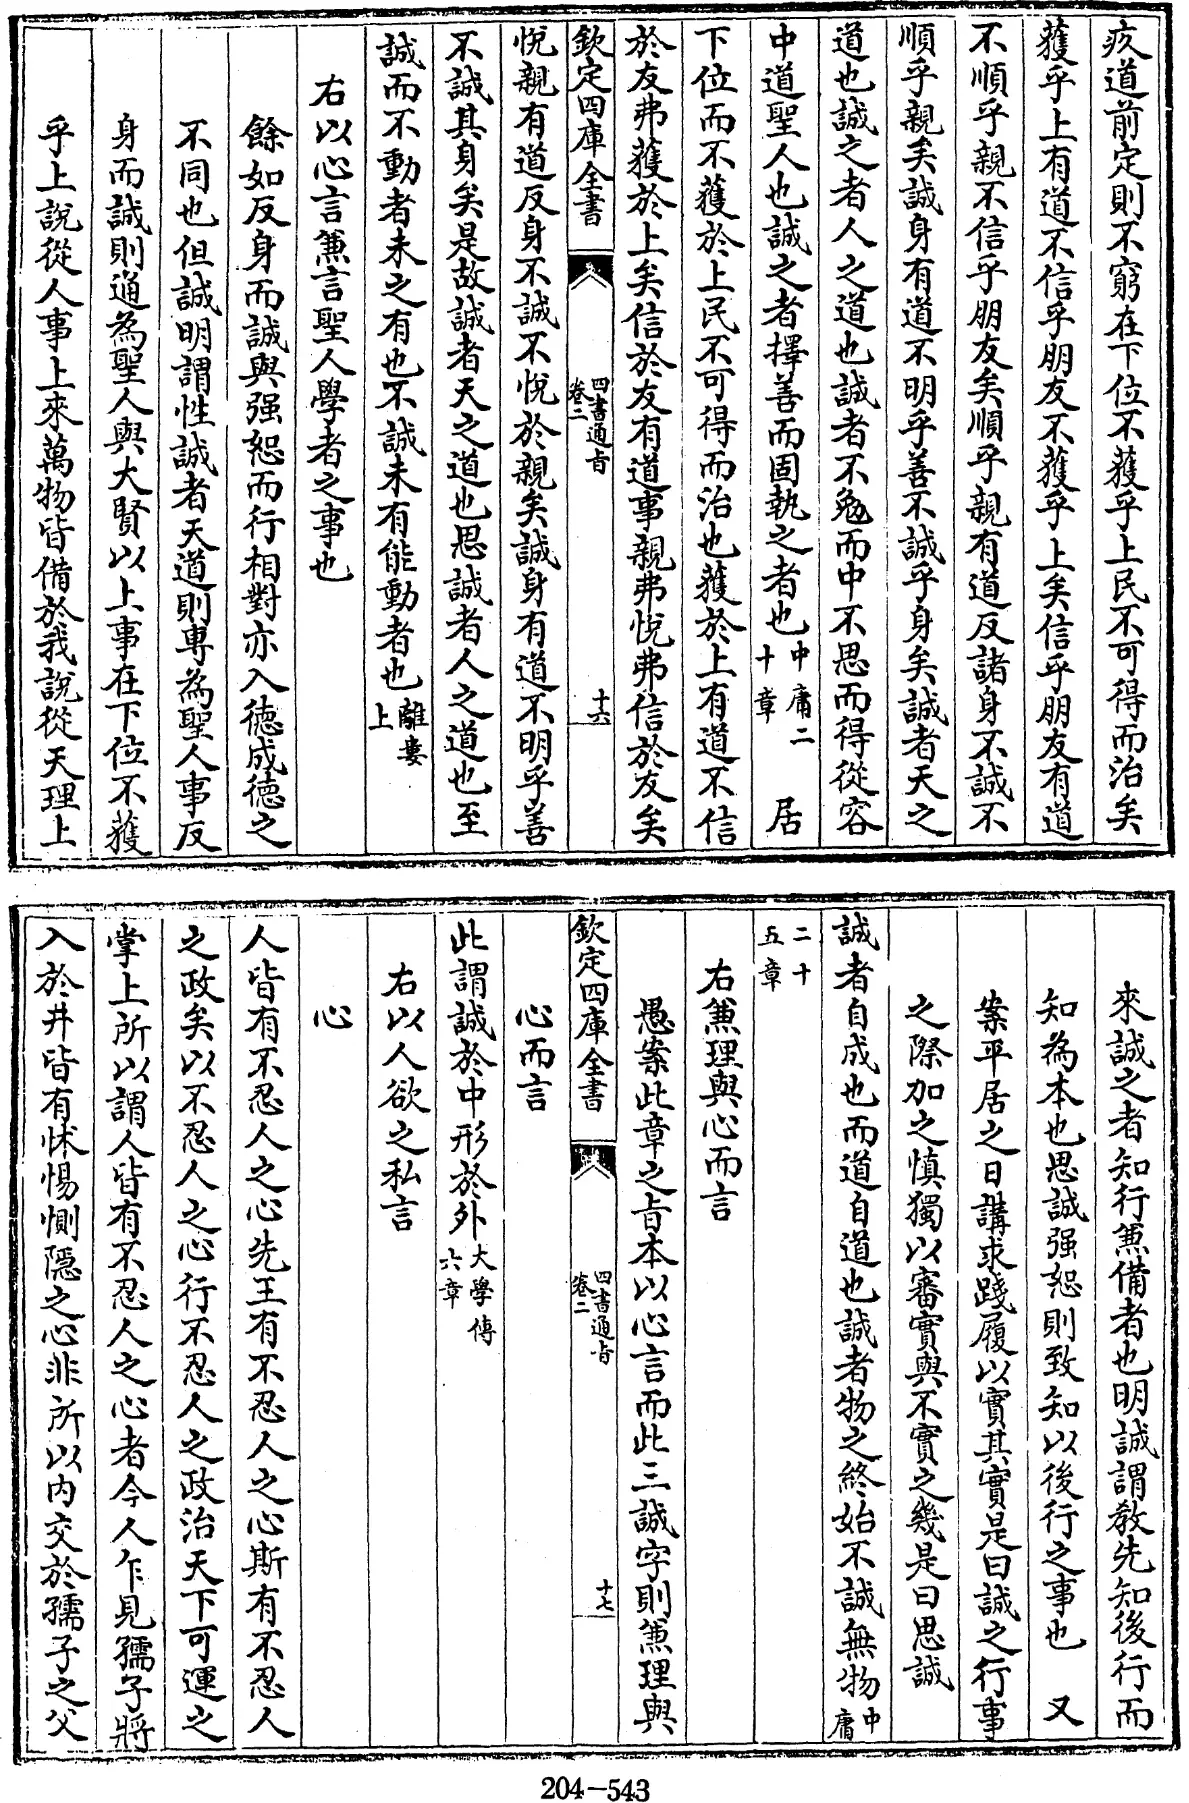 疚道前定則不窮在下位不獲乎上民不可得而治矣
獲乎上有道不信乎朋友不獲乎上矣信乎朋友有道
不順乎親不信乎朋友矣順乎親有道反諸身不誠不
順乎親矣誠身有道不明乎善不誠乎身矣誠者天之
道也誠之者人之道也誠者不勉而中不思而得從容
中道聖人也誠之者擇善而固執之者也中庸二十章 居
下位而不獲於上民不可得而治也獲於上有道不信
於友弗獲於上矣信於友有道事親弗悅弗信於友矣
欽定四庫全書 四書通旨卷二 十六
悅親有道反身不誠不悅於親矣誠身有道不明乎善
不誠其身矣是故誠者天之道也思誠者人之道也至
誠而不動者未之有也不誠未有能動者也離婁上
右以心言兼言聖人學者之事也
餘如反身而誠與强恕而行相對亦入德成德之
不同也但誠明謂性誠者天道則專為聖人事反
身而誠則通為聖人與大賢以上事在下位不獲
乎上說從人事上來萬物皆備於我說從天理上
來誠之者知行兼備者也明誠謂教先知後行而
知為本也思誠强恕則致知以後行之事也 又
案平居之日講求踐履以實其實是曰誠之行事
之際加之慎獨以審實與不實之幾是曰思誠
誠者自成也而道自道也誠者物之終始不誠無物中庸
二十五章
右兼理與心而言
愚案此章之旨本以心言而此三誠字則兼理與
欽定四庫全書 四書通旨卷二 十七
心而言
此謂誠於中形於外大學傳六章
右以人欲之私言
心
人皆有不忍人之心先王有不忍人之心斯有不忍人
之政矣以不忍人之心行不忍人之政治天下可運之
掌上所以謂人皆有不忍人之心者今人乍見孺子將
入於井皆有怵惕惻隱之心非所以内交於孺子之父
204-543